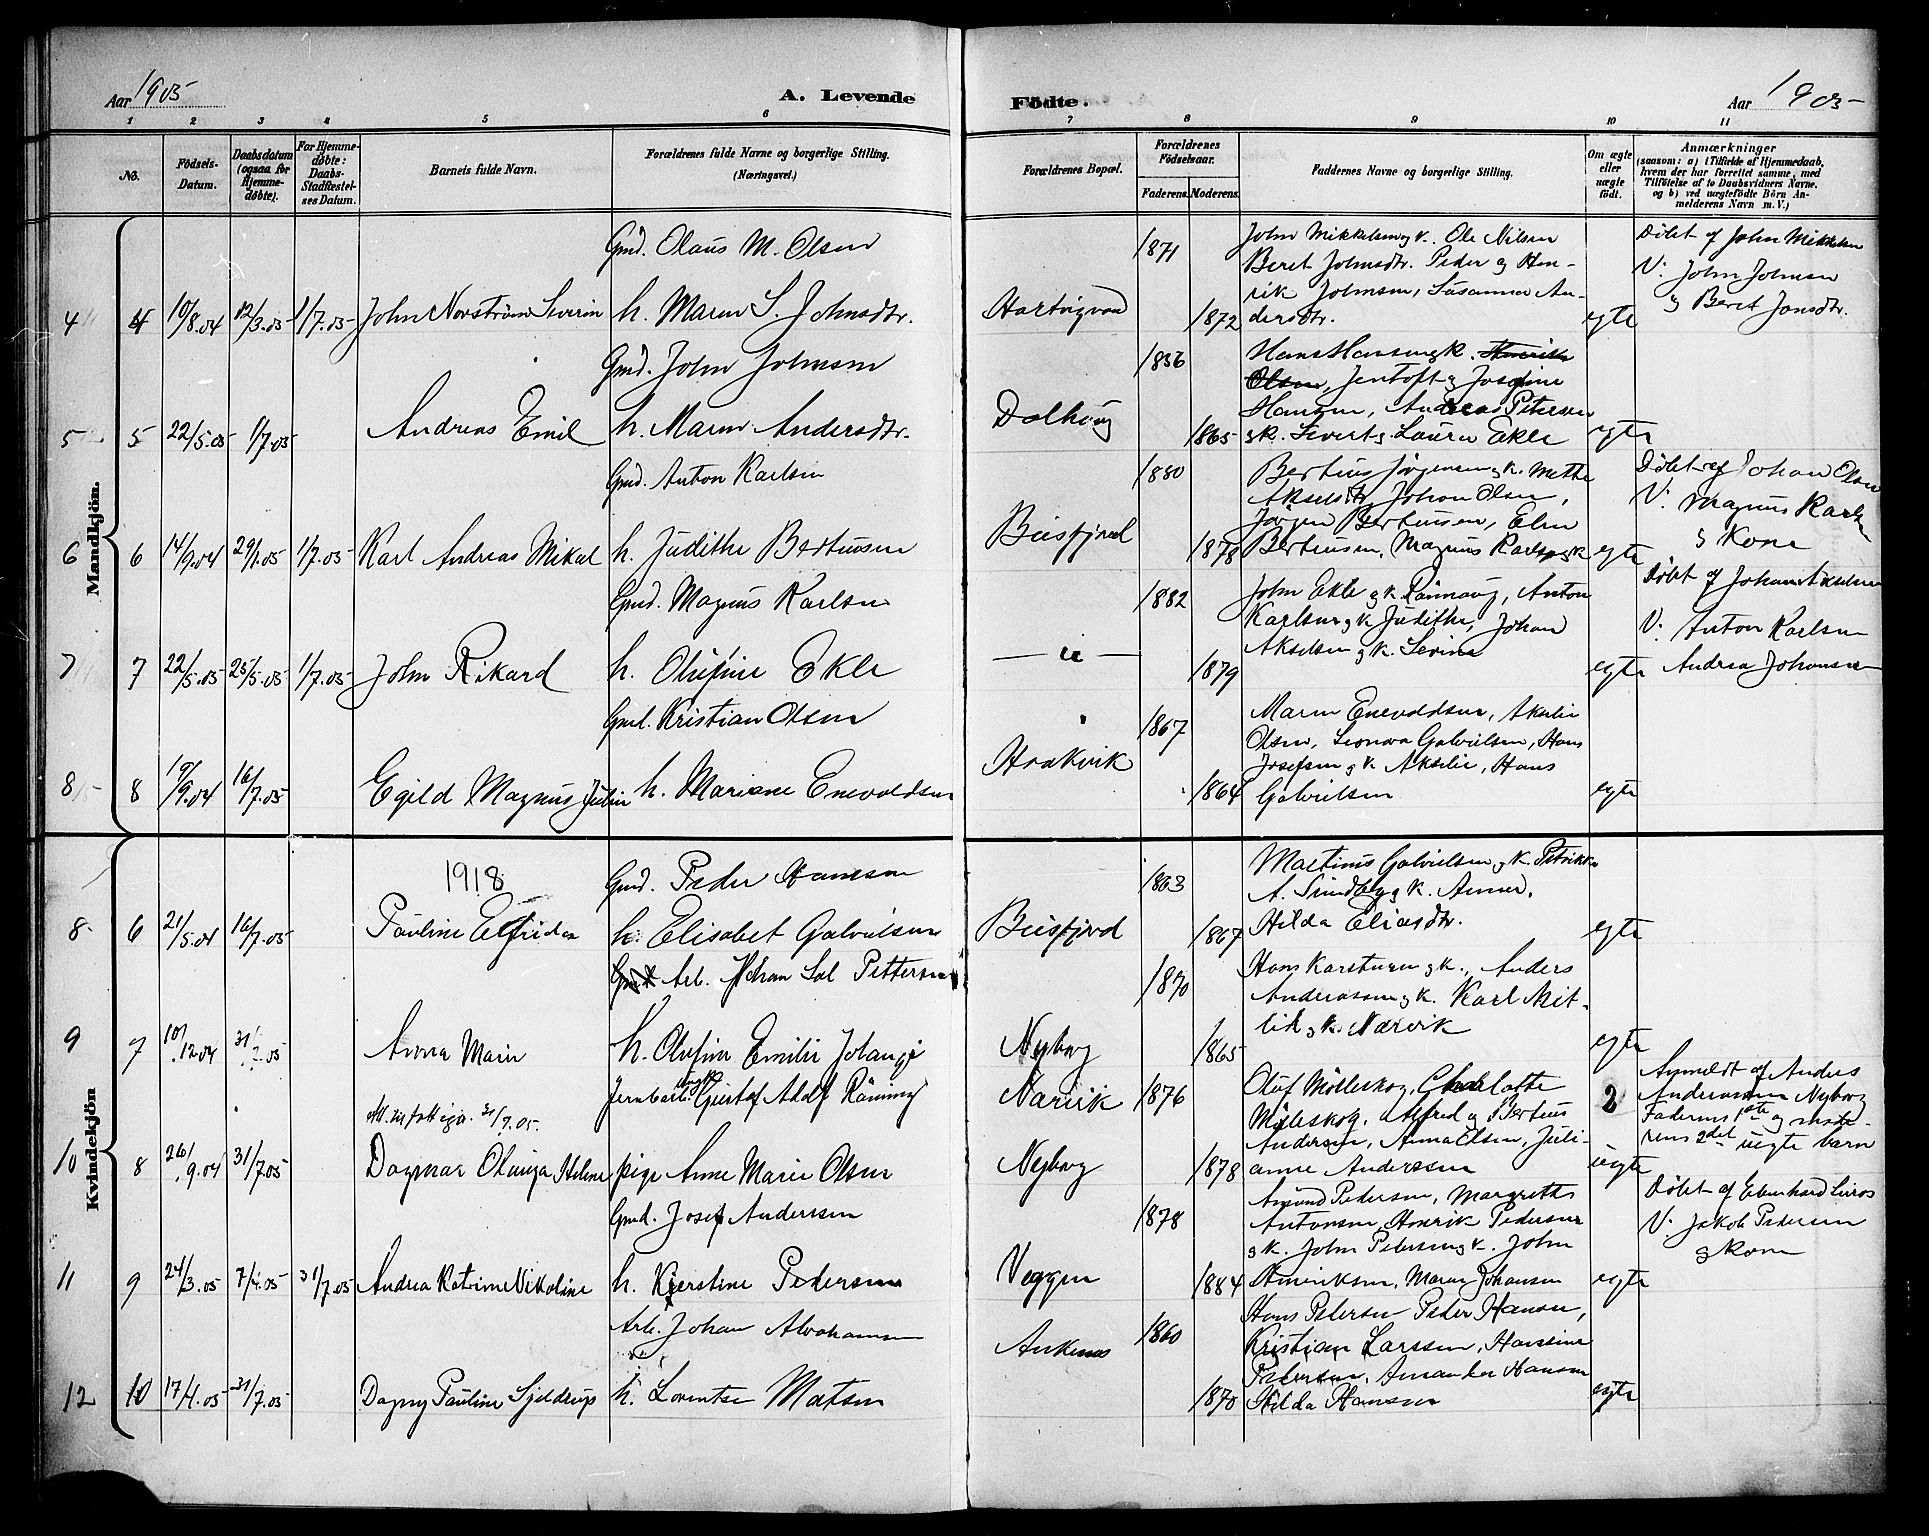 Aar 1905
A. Levende
Födte.
Aar 1905
1 2 3 4 5 6 7 8 9 10 11
No.
Födsels-Datum.
Daabsdatum (ogsaa for Hjemme-döbte).
For Hjemme-döbte: Daabs-Stadfæstel-ses Datum.
Barnets fulde Navn.
Forældrenes fulde Navne og borgerlige Stilling. (Næringsvei.)
Forældrenes Bopæl.
Forældrenes Fødselsaar.
Faderens. Moderens.
Faddernes Navne og borgerlige Stilling.
Om ægte eller uægte födt.
Anmærkninger
(saasom: a) i Tilfælde af Hjemmedaab, hvem der har forrettet samme, med Tilföielse af to Daabsvidners Navne. og b) ved uægtefödte Börn An-melderens Navn m. V.)
Mandkjön.
4 4 10/8.04 12/3.05 1/7.05 John Norström Severin
Gmd. Olaus M. Olsen
h. Maren S. Johnsdtr.
Hartvigvan
1871
1872
John Mikkelsen og k. Ole Nilsen
Beret Johnsdtr. Peder og Hen-
rik Johnsen, Susanna An-
dersdtr.
egte
Döbt af John Mikkelsen
V. John Johnsen
og Beret Jonsdtr.
5 5 22/5.05 1/7.05 Andreas Emil
Gmd. John Johnsen
h. Maren Andersdtr.
Dalhaug
1856
1865
Hans Hansen og k. Henrik
Olsen, Jentoft og Josefine
Hansen, Andreas Petersen
og k. Sivert og Laura Ekle
egte
6 6 14/9.04 29/1.05 1/7.05 Karl Andreas Mikal
Gmd. Anton Karlsen
h. Judithe Berteusen
Beisfjord
1880
1878
Berteus Jørgensen og k. Mette
Akselsdtr. Johan Olsen,
Jörgen Berteussen, Elen
Berteusen, Magnus Karlsen og k
egte
Döbt af Johan Olsen
V. Magnus Karlsen
og Kone
7 7 22/5.05 25/5.05 1/7.05 John Rikard
Gmd. Magnus Karlsen
h. Olufine Ekle
1882
1879
John Ekle og k. Rönnaug, Anton
Karlsen og k Judithe, Johan
Akselsen og k. Sevine
egte
Döbt af Johan Akselsen
V. Anton Karlsen
Andrea Johansen
8 8 19/9.04 16/7.05 Egild Magnus Julin
Gmd. Kristian Olsen
h. Mariane Enevoldsen
Haakvik
1867
1864
Maren Enevoldsen, Akselie
Olsen, Leonora Gabrielsen, Hans
Josefsen og k Akselie, Hans
Gabrielsen
egte
Kvindekjön
8 6 21/5.04 16/7.05
1918
Pauline Elfrida
Gmd. Peder Hansen
h. Elisabet Gabrielsen
Beisfjord
1863
1867
Martinus Gabrielsen og k. Petrikke
A. Sundby og k. Anna.
Hilda Eliasdtr.
egte
9 7 10/12 04 31/7.05 Anna Marie
Gmd. Arb. Johan Sal Pettersen
h. Olufine Emilie Jolangi
Nyborg
1870
1865
Hans Karstensen og k., Anders
Andreassen og k. Karl Mit-
lid og k. Narvik
egte
10 8 26/9.04 31/7.05
Att. m fattigv. 31/7.05.
Dagmar Olaviga Helene
Jernbarb. ungk. Gustaf Adolf Rönning
pige Anne Marie Olsen
Narvik
Nyborg
1876
1878
Oluf Mölleskog, Charlotte
Mölleskog, Alfred og Berteus
Andersen, Anna Olsen, Juli-
anne Anderssen
2
uegte
Anmeldt af Anders
Andreassen Nyborg
Faderens 1ste og mode-
rens 2det uegte barn
11 9 24/3.05 7/4.05 31/7.05 Andrea Katrine Nikoline
Gmd. Josef Anderssen
h. Kjerstine Pedersen
Veggen
1878
1884
Amund Pedersen, Margrethe
Antonsen, Henrik Pedersen
og k. John Petersen og k. John
Henriksen, Maren Johansen
egte
Döbt af Eberhard Livos
V. Jakob Pedersen
og Kone
12 10 17/4.05 31/7.05 Dagny Pauline Sjeldrup
Arb. Johan Abrahamsen
h. Lorentse Matsen
Ankenes
1860
1870
Hans Petersen Peder Hansen,
Kristian Larssen, Hansine
Pedersen, Amanda Hansen
Hilda Hansen
egte